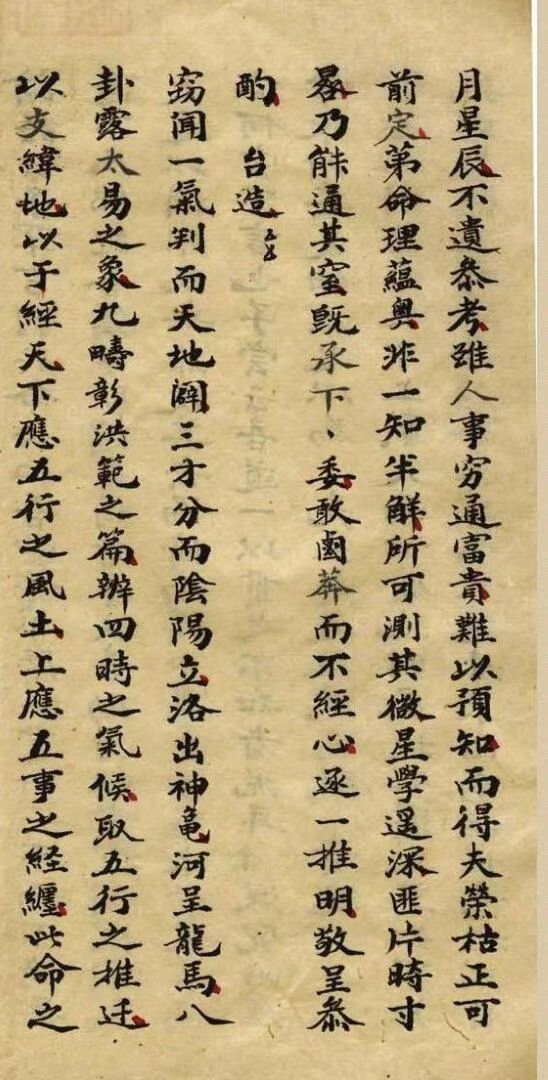 月星辰不遺叅考雖人事穷通富貴難以預知而得夫榮枯正可
前定第命理蘊奥非一知半解所可測其微星學遥深匪片時寸
晷乃能通其窒既承下、委敢鹵莽而不經心逐一推明敬呈叅
酌 台造
窃闻一氣判而天地闢三才分而陰陽立洛出神龜河呈龍馬八
卦露太易之象九疇彰洪範之篇辨四時之氣候取五行之推迁
以支緯地以于經天下應五行之風土上應五事之経纏此命之